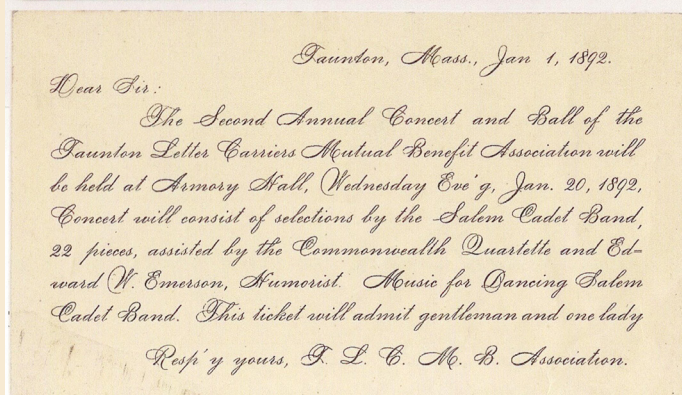 Taunton, Mass., Jan 1, 1892.
Dear Sir:
The Second Annual Concert and Ball of the
Taunton Letter Carriers Mutual Benefit Association will
be held at Armory Hall, Wednesday Eve'g, Jan. 20, 1892,
Concert will consist of selections by the Salem Cadet Band,
22 pieces, assisted by the Commonwealth Quartette and Ed=
ward W. Emerson, Humorist. Music for Dancing Salem
Cadet Band. This ticket will admit gentleman and one lady
Resp'y yours, T. L. C. M. B. Association.